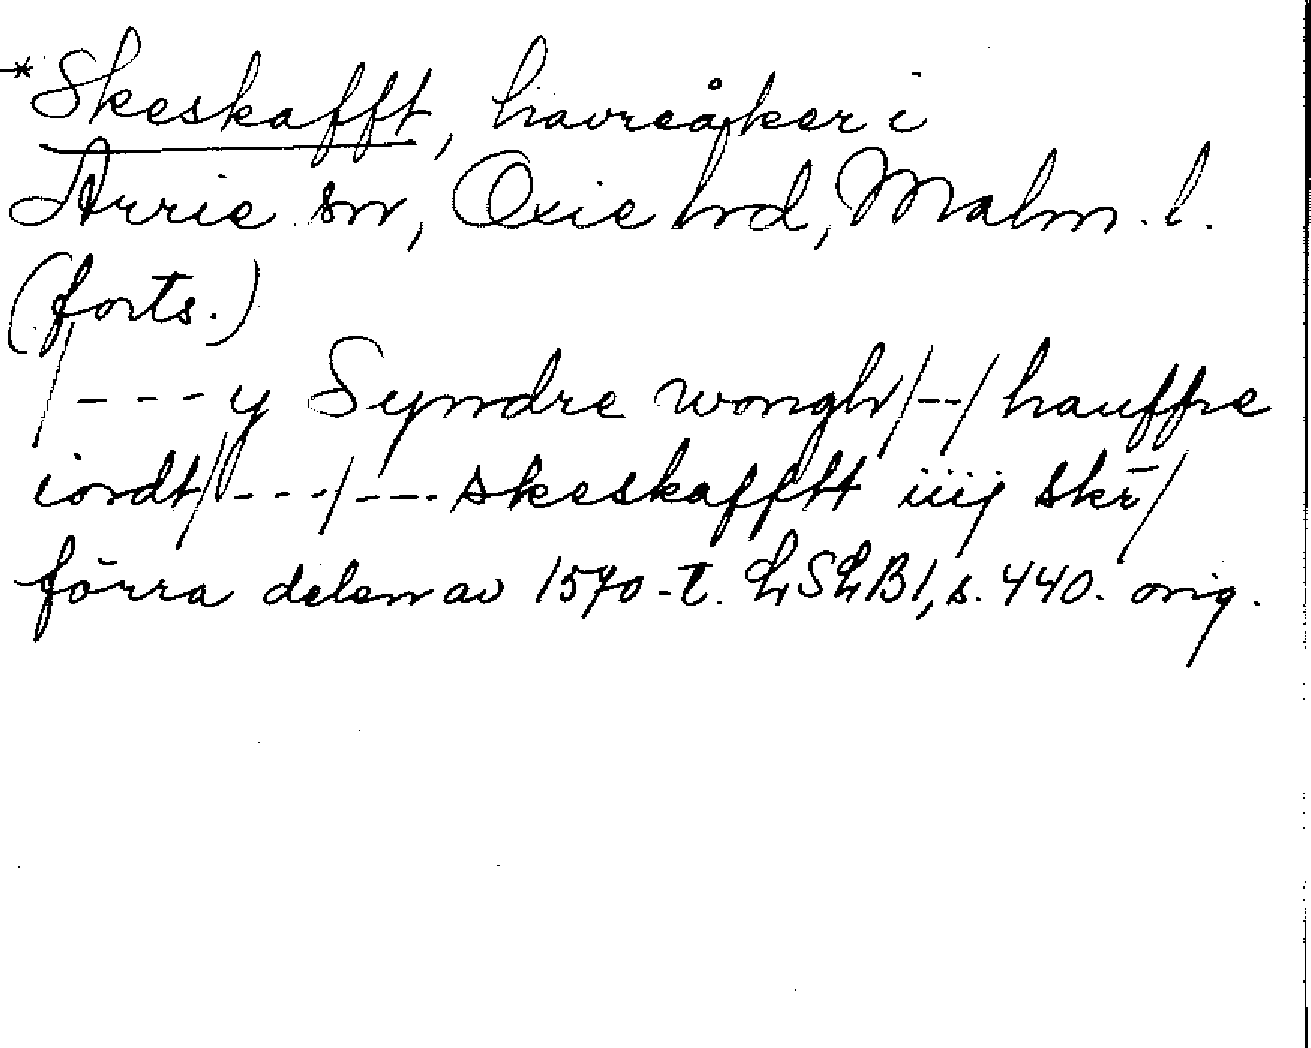 *Skeskafft, havreåker i
Arrie sn, Oxie hd, Malm. l.
(forts.)
/---y Syndre wongh/--/hauffre
iordt/---/---skeskafftt iiij skr̄/
förra delen av 1570-t. LSLB1, s. 440. orig.